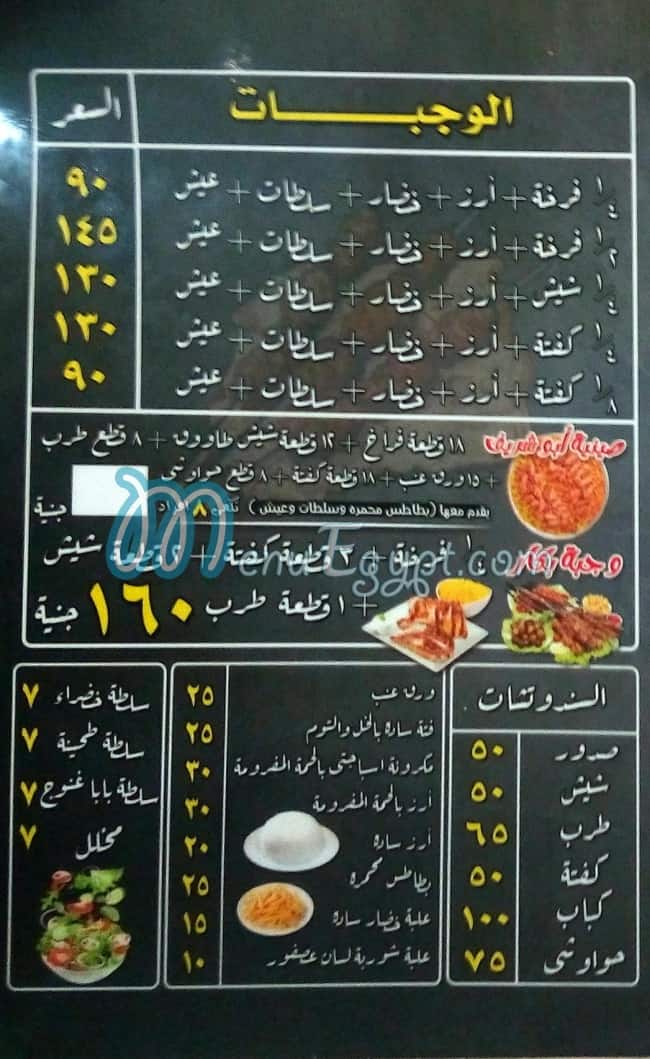 الوجبات السعر
١/٤ فرخة + أرز + خضار + سلطات + عيش ٩٠
١/٢ فرخة + أرز + خضار + سلطات + عيش ١٤٥
١/٤ شيش + أرز + خضار + سلطات + عيش ١٣٠
١/٤ كفتة + أرز + خضار + سلطات + عيش ١٣٠
١/٨ كفتة + أرز + خضار + سلطات + عيش ٩٠
صينية أبو شريف
١٨ قطعة فراخ + ١٢ قطعة شيش طاووق + ٨ قطع طرب
+ ١٥ ورق عنب + ١٨ قطعة كفتة + ٨ قطع حواوشى
يقدم معها (بطاطس محمره وسلطات وعيش) تكفى ٨ أفراد جنية
MenuEgypt.com
١/٤ فرخة + ٣ قطعة كفتة + ٢ قطعة شيش
+ ١ قطعة طرب ١٦٠ جنية
السندوتشات
صدور ٥٠
شيش ٥٠
طرب ٦٥
كفتة ٥٠
كباب ١٠٠
حواوشى ٧٥
ورق عنب ٢٥
فتة سادة بالخل والتوم ٢٥
مكرونة اسباجتى بالحمة المفرومة ٣٠
أرز بالحمة المفرومة ٣٠
أرز سادة ٢٠
بطاطس محمرة ٢٥
علبة خضار سادة ١٥
علبة شوربة لسان عصفور ١٠
سلطة خضراء ٧
سلطة طحينة ٧
سلطة بابا غنوج ٧
مخلل ٧